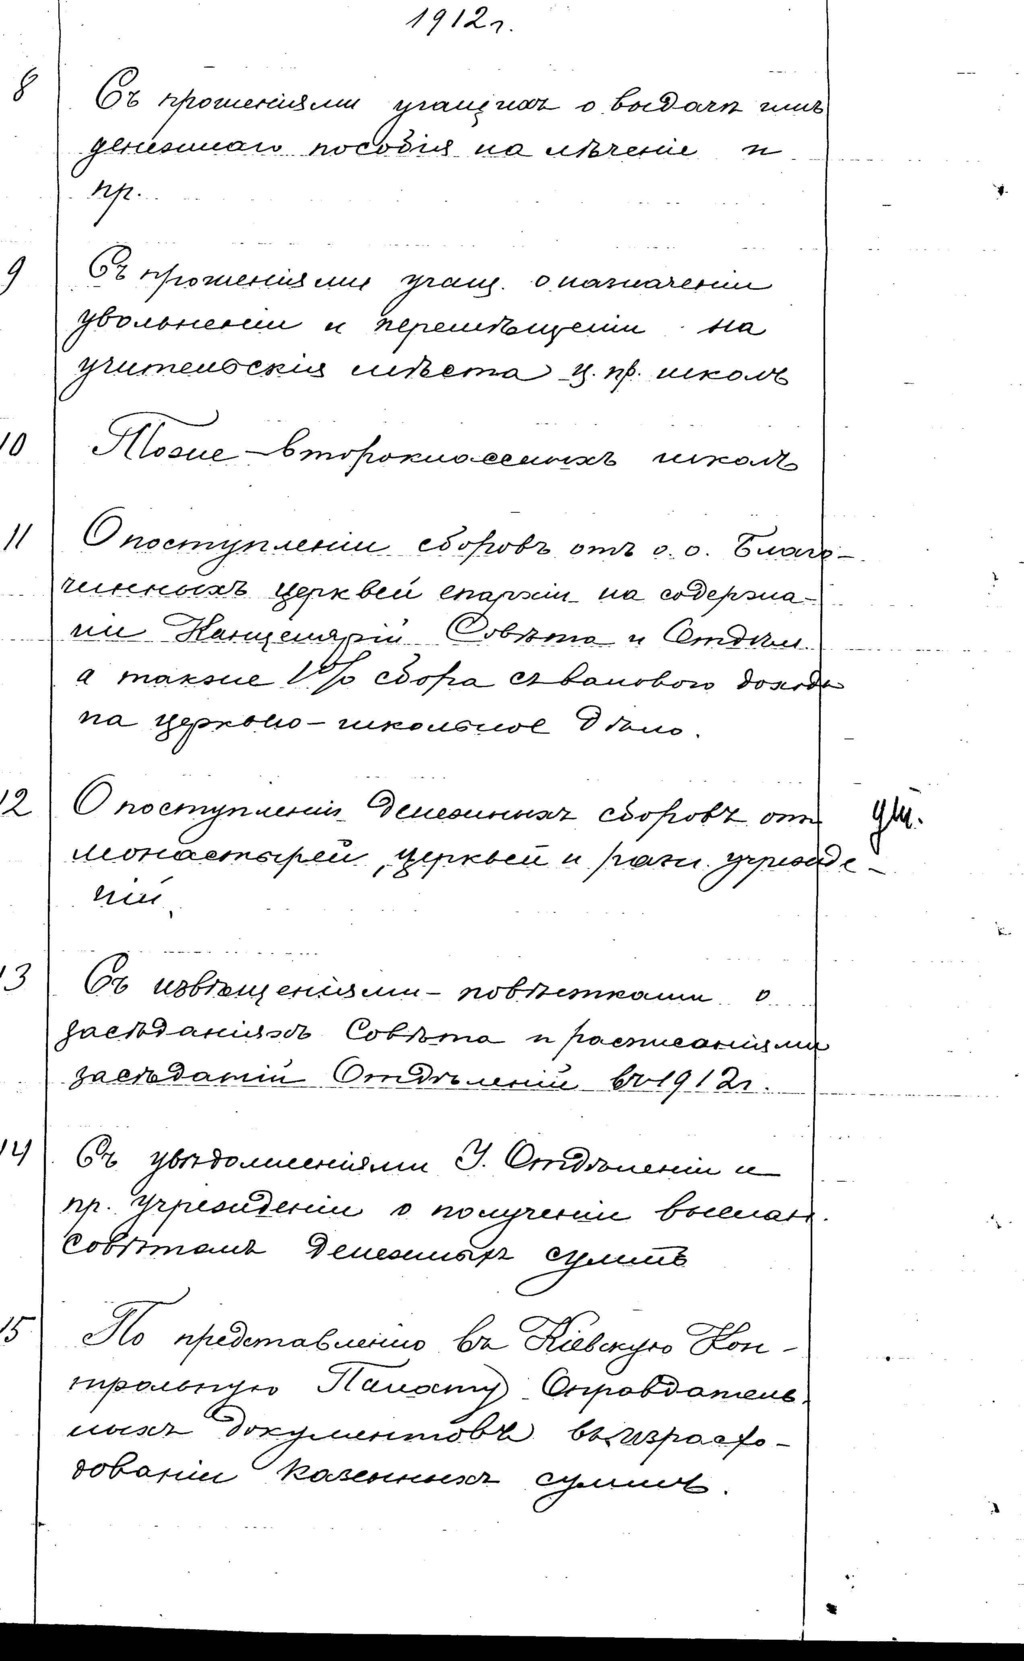 1912 г.
8 Съ прошеніями учащихъ о выдачѣ имъ
денежнаго пособія на лѣченіе и
пр.
9 Съ прошеніями учащ. о назначеніи
увольненіи и перемѣщеніи на
учительскія мѣста ц. пр. школъ
10 Тоже – второклассныхъ школъ
11 О поступленіи сборовъ отъ о.о. Благо-
чинныхъ церквей епархіи на содержа-
ніи Канцелярій Совѣта и Отдѣл.
а также 1% сбора съ валового дохода
на церковно-школьное дѣло.
12 О поступленіи денежныхъ сборовъ отъ
монастырей, церквей и разн. учрежде-
ній.
13 Съ извѣщеніями-повѣстками о
засѣданіяхъ Совѣта и расписаніями
засѣданій Отдѣленій въ 1912 г.
14 Съ увѣдомленіями У. Отдѣленіи и
пр. учрежденіи о полученіи высылан.
Совѣтомъ денежныхъ суммъ
15 По представленію въ Кіевскую Кон-
трольную Палату Оправдатель-
ныхъ документовъ въ израсхо-
дованіи казенныхъ суммъ.